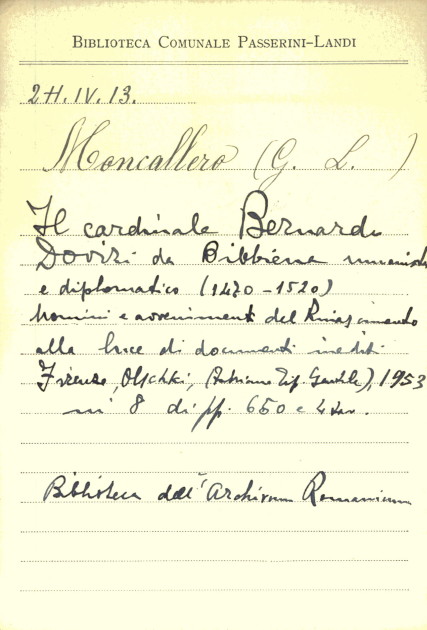 BIBLIOTECA COMUNALE PASSERINI-LANDI
2H.IV.13.
Moncallero (G. L. )
Il cardinale Bernardo
Dovizi da Bibbiena umanista
e diplomatico (1470-1520)
Uomini e avvenimenti del Rinascimento
alla luce di documenti inediti
Firenze, Olschki, Tip. Gentile), 1953
in 8 di pp. 650 e 4 tav.
Biblioteca dell'Archivum Romanicum